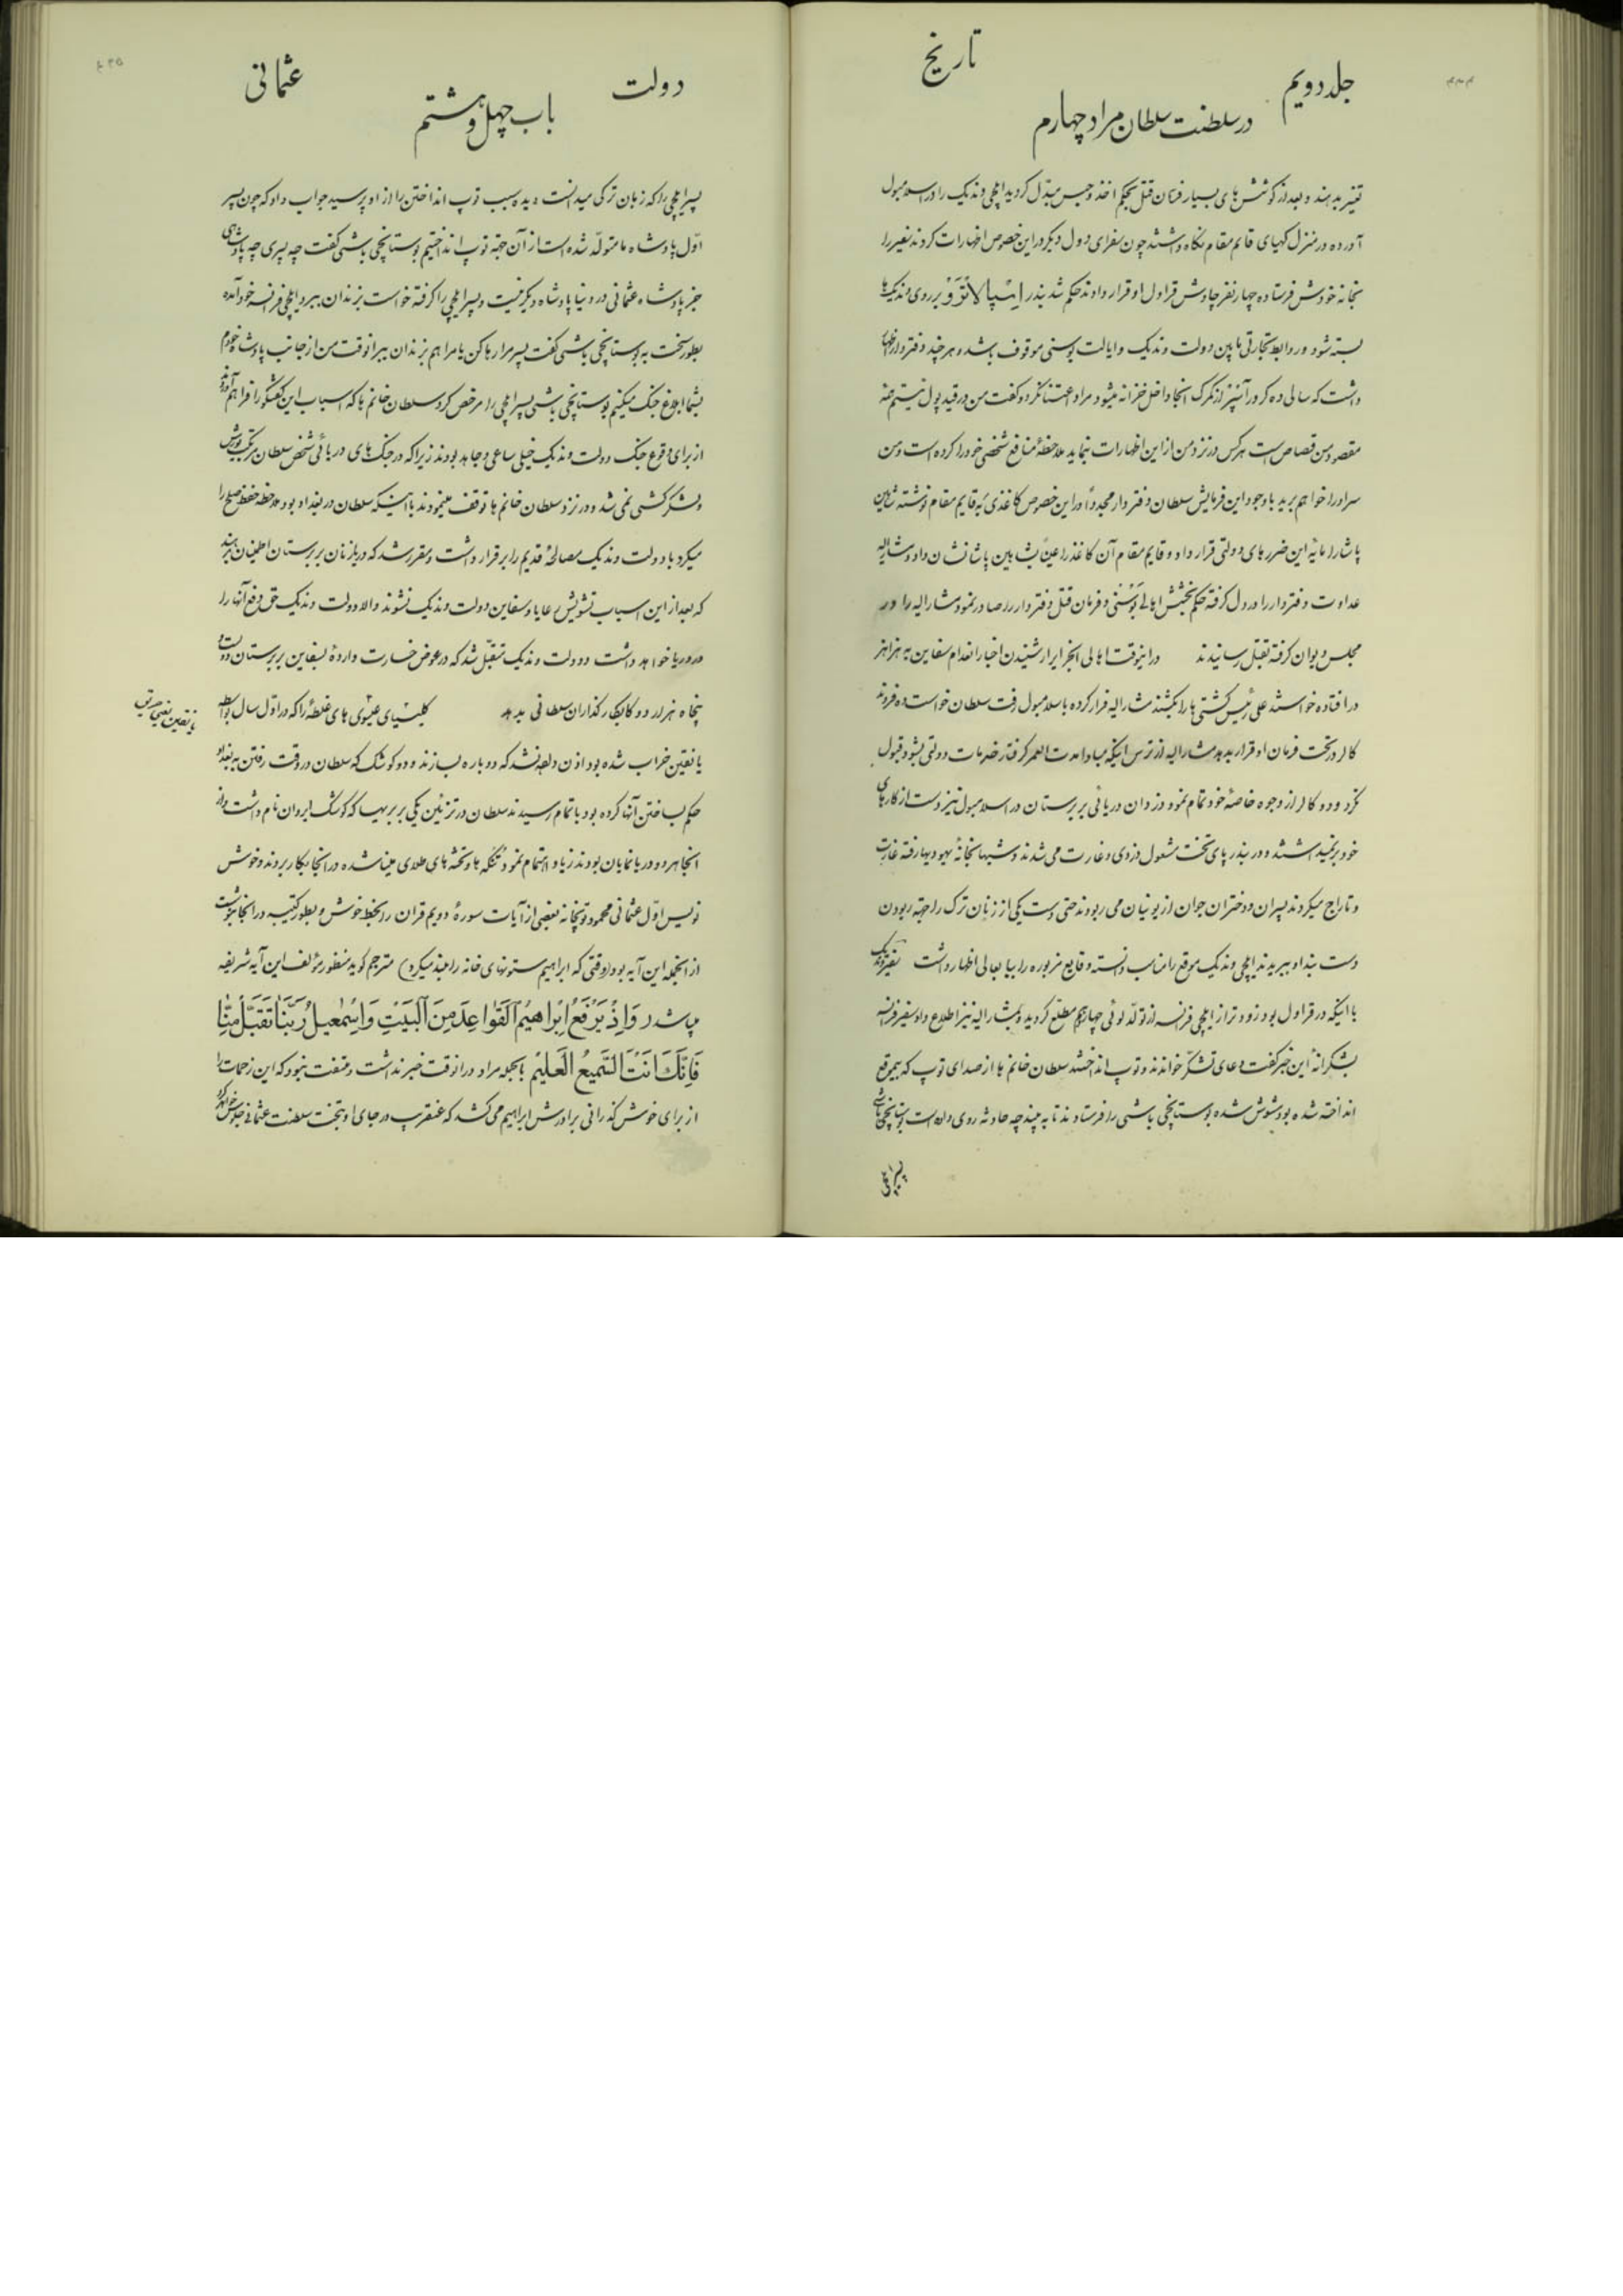 جلد دویم
تاریخ
در سلطنت سلطان مراد چهارم
تغییر بدهند و بعد از کوشش‌های بسیار فرمان قتل بحکم اخذ و حبس مبدّل گردید ایلچی وندیک را در اسلامبول
آورده در منزل کهیای قایم مقام نگاه داشتند چون سفرای دول دیگر در این خصوص اظهارات کردند سفیر را
بخانه خودش فرستاده چهار نفر چاوش قراول او قرار دادند حکم شد بندر اسپالاترو بر روی وندیک‌ها
بسته شود و روابط تجارتی مابین دولت وندیک و ایالت بوسنی موقوف باشد و هر چند دفتردار اظهار
داشت که سالی ده کرور آسپر از گمرک آنجا داخل خزانه میشود مراد اعتنا نکرد و گفت من در قید پول نیستم
مقصود من قصاص است هر کس در نزد من از این اظهارات بنماید ملاحظهٔ منافع شخصی خود را کرده است و من
سر او را خواهم برید با وجود این فرمایش سلطان دفتردار مجدداً در این خصوص کاغذی به قایم مقام نوشته شاهین
پاشا را مایهٔ این ضررهای دولتی قرار داد و قایم مقام آن کاغذ را عیناً بشاهین پاشا نشان داد و مشارالیه
عداوت دفتردار را در دل گرفته حکم بخشش اهالی بوسنی و فرمان قتل دفتردار را صادر نمود و مشارالیه را در
مجلس دیوان گرفته بقتل رسانیدند در اینوقت اهالی الجزایر از شنیدن اخبار انعدام سفاین به هراهر
در افتاده خواستند علی رئیس کشتی‌ها را بکشند مشارالیه فرار کرده باسلامبول رفت سلطان خواست ده فروند
کالر در تحت فرمان او قرار بدهد مشارالیه از ترس اینکه مبادا مدت العمر گرفتار خدمات دولتی بشود قبول
نکرد و دو کالر از وجوه خاصهٔ خود تمام نمود دزدان دریائی بربرستان در اسلامبول نیز دست از کارهای
خود بر نمیداشتند و در بندر پای تخت مشغول دزدی و غارت می‌شدند و شبها بخانهٔ یهودیها رفته غارت
و تاراج میکردند پسران و دختران جوان از یونیان می ربودند حتی دست یکی از زنان ترک را جهة ربودن
دست بند او ببریدند ایلچی وندیک موقع را مناسب دانسته وقایع مزبوره را بباب عالی اظهار داشت سفیر وندیک
با اینکه در قراول بود زودتر از ایلچی فرانسه از تولّد لوئی چهاردهم مطلع گردید و بمشارالیه نیز اطلاع داد سفیر فرانسه
بشکرانهٔ این خبر گفت دعای تشکر خواندند و توپ انداختند سلطان خانم‌ها از صدای توپ که بیموقع
انداخته شده بود مشوش شده بوستانچی باشی را فرستادند تا به بیند چه حادثه روی داده است بوستانچی باشی
پسر ایلچی
دولت
عثمانی
باب چهل و هشتم
پسر ایلچی را که زبان ترکی میدانست دیده سبب توپ انداختن را از او پرسید جواب داد که چون پسر
اوّل پادشاه ما متولّد شده است از آن جهة توپ انداختیم بوستانچی باشی گفت چه پسری چه پادشاهی
جز پادشاه عثمانی در دنیا پادشاه دیگر نیست و پسر ایلچی را گرفته خواست بزندان ببرد ایلچی فرانسه خود آمده
بطور سخت به بوستانچی باشی گفت پسر مرا رها کن یا مرا هم بزندان ببر آنوقت من از جانب پادشاه خودم
بشما ابلاغ جنگ میکنیم بوستانچی باشی پسر ایلچی را مرخص کرد سلطان خانم‌ها که اسباب این گفتگو را فراهم آوردند
از برای وقوع جنگ دولت وندیک خیلی ساعی و جاهد بودند زیرا که در جنگ‌های دریائی شخص سلطان مرتکب یورش
و لشکرکشی نمی شد و در نزد سلطان خانم‌ها توقف مینمودند با اینکه سلطان در بغداد بود ملاحظه حفظ صلح را
میکرد با دولت وندیک مصالحهٔ قدیم را برقرار داشت و مقرر شد که دریازنان بربرستان اطمینان بدهند
که بعد از این اسباب تشویش رعایا و سفاین دولت وندیک نشوند والا دولت وندیک حق دفع آنها را
در دریا خواهد داشت و دولت وندیک متقبّل شد که در عوض خسارت واردهٔ بسفاین بربرستان دویست و
پنجاه هزار دوکا بکارگذاران سلطانی بدهد کلیسیای عیسوی‌های غلطه را که در اوّل سال بواسطه
یانقین خراب شده بود اذن داده نشد که دوباره بسازند و دو کوشک که سلطان در وقت رفتن به بغداد
حکم بساختن آنها کرده بود باتمام رسیدند سلطان در تزئین یکی بر بر یها که کوشک ایروان نام داشت و از
آنجا هر دو دریا نمایان بودند زیاد اهتمام نمود تنگه‌ها و تخته‌های طلای مینا شده در آنجا بکار بردند و خوش
نویس اوّل عثمانی محمود توپخانه بعضی از آیات سورهٔ دویم قران را بخط خوش و بطور کتیبه در آنجا نوشت
از آنجمله این آیه بود (وقتی که ابراهیم ستونهای خانه را بلند میکرد) مترجم گوید منظور مؤلف این آیه شریفه
میباشد وَاِذْ یَرْفَعُ اِبْراهیمُ الْقَواعِدَ مِنَ الْبَیْتِ وَاِسْمٰعیلُ رَبَّنا تَقَبَّلْ مِنّا
فَاِنَّكَ اَنْتَ السَّمیعُ الْعَلیمُ بالجمله مراد در آنوقت خبر نداشت و ملتفت نبود که این زحمات را
از برای خوش گذرانی برادرش ابراهیم می کشد که عنقریب در جای او بتخت سلطنت عثمانی جلوس خواهد کرد
یانقین یعنی حریق